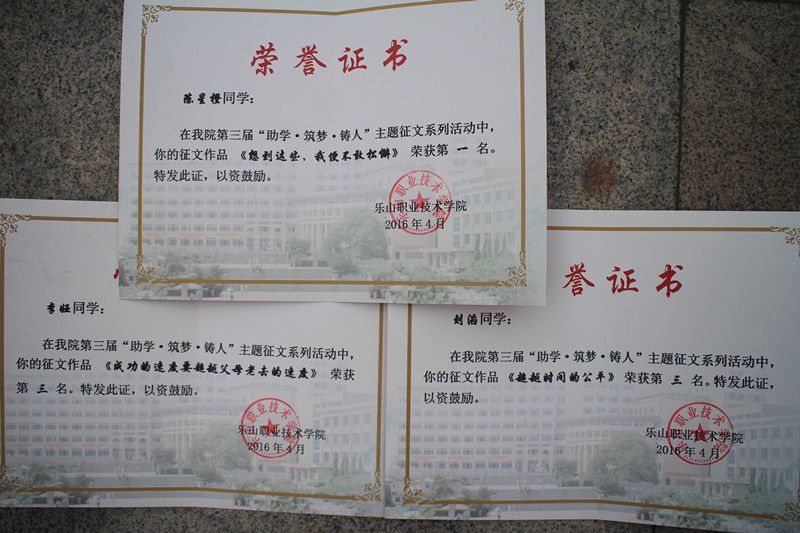 荣誉证书
陈星橙同学：
在我院第三届“助学·筑梦·铸人”主题征文系列活动中，
你的征文作品《想到这些，我便不敢松懈》荣获第一名。
特发此证，以资鼓励。
乐山职业技术学院
2016年4月
李娅同学：
在我院第三届“助学·筑梦·铸人”主题征文系列活动中，
你的征文作品《成功的速度要超越父母老去的速度》荣获
第三名。特发此证，以资鼓励。
乐山职业技术学院
2016年4月
誉证书
刘滔同学：
在我院第三届“助学·筑梦·铸人”主题征文系列活动中，
你的征文作品《超越时间的公平》荣获第三名。特发此证，
以资鼓励。
乐山职业技术学院
2016年4月